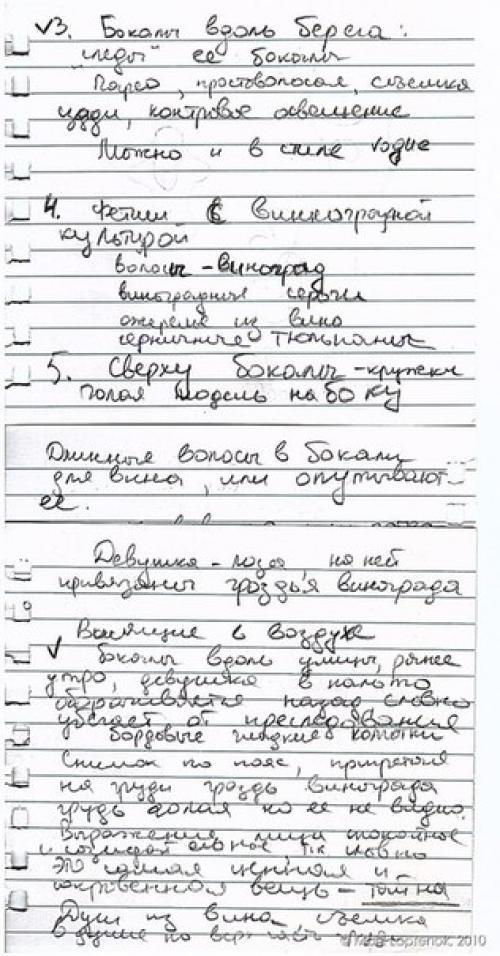 √3. Бокалы вдоль берега:
"следы" ее бокалы
Парео, простоволосая, съемка
, контровое освещение
Можно и в стиле
4. Фетиш с виноградной
культурой
волосы - виноград
виноградные серьги
ожерелье из вино
тюльпаны
5. Сверху бокалы - кружки
голая модель на боку
Длинные волосы в бокалы
для вина, или опутывают
ее.
Девушка - лоза, на ней
привязаны гроздья винограда
Висящие в воздухе
√ бокалы вдоль улицы, раннее
утро, девушка в пальто
оборачивается назад словно
убегает от преследования
бордовые гладкие колготки
Снимок по пояс,
на груди гроздь винограда
грудь голая но ее не видно.
Выражение лица спокойное
и , т.к словно
это самая ценная и
сокровенная вещь - тайна
Душ из вина съемка
в душе по
2010